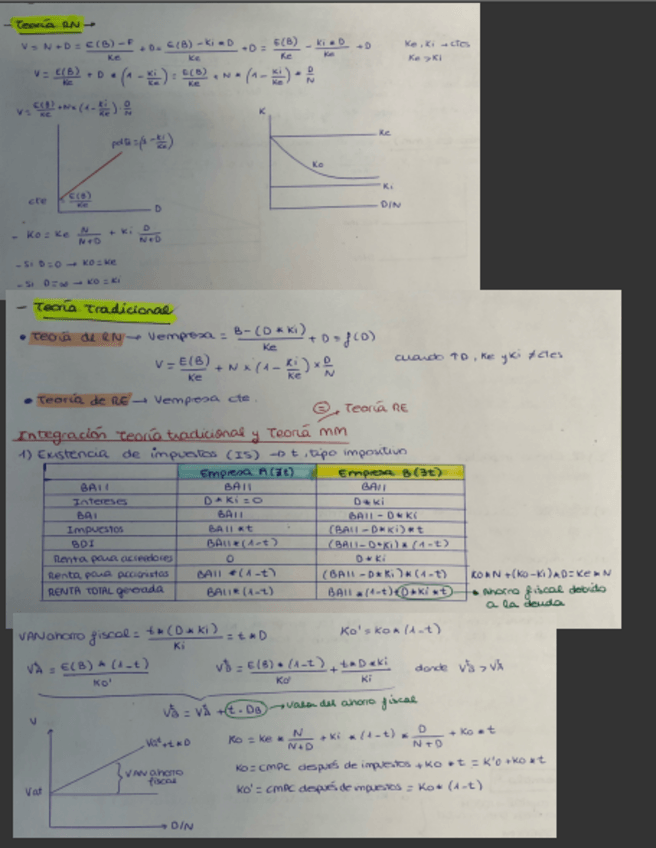 - Teoría RN →
V = N + D = E(B) - F / Ke + D = E(B) - Ki * D / Ke + D = E(B) / Ke - Ki * D / Ke + D
Ke, Ki → ctes
Ke > Ki
V = E(B) / Ke + D * (1 - Ki / Ke) = E(B) / Ke + N * (1 - Ki / Ke) * D / N
V = E(B) / Ke + N * (1 - Ki / Ke) · D / N
pdte = (1 - Ki / Ke)
cte
E(B) / Ke
D
K
Ke
Ko
Ki
D/N
- Ko = Ke N / N+D + Ki D / N+D
- Si D=0 → Ko = Ke
- Si D=∞ → Ko = Ki
- Teoría Tradicional
• Teoría de RN → Vempresa = B - (D * Ki) / Ke + D = f(D)
V = E(B) / Ke + N * (1 - Ki / Ke) * D / N
cuando ↑D, Ke y Ki ≠ ctes
• Teoría de RE → Vempresa cte.
= Teoría RE
Integración Teoría tradicional y Teoría MM
1) Existencia de impuestos (IS) → t, tipo impositivo
Empresa A (∄t) Empresa B (∃t)
BAII BAII BAII
Intereses D * Ki = 0 D * Ki
BAI BAII BAII - D * Ki
Impuestos BAII * t (BAII - D * Ki) * t
BDI BAII * (1-t) (BAII - D * Ki) * (1-t)
Renta para acreedores 0 D * Ki
Renta para accionistas BAII * (1-t) (BAII - D * Ki) * (1-t) Ko * N + (Ko - Ki) * D = Ke * N
RENTA TOTAL generada BAII * (1-t) BAII * (1-t) + D * Ki * t • ahorro fiscal debido
a la deuda
VAN ahorro fiscal = t * (D * Ki) / Ki = t * D
Ko' = Ko * (1-t)
VA = E(B) * (1-t) / Ko'
VB = E(B) * (1-t) / Ko' + t * D * Ki / Ki donde VB > VA
VB = VA + t · DB → valor del ahorro fiscal
V
Vat + t * D
VAN ahorro
fiscal
Vat
D/N
Ko = Ke * N / N+D + Ki * (1-t) * D / N+D + Ko * t
Ko = CMPC después de impuestos + Ko * t = K'o + Ko * t
Ko' = CMPC después de impuestos = Ko * (1-t)